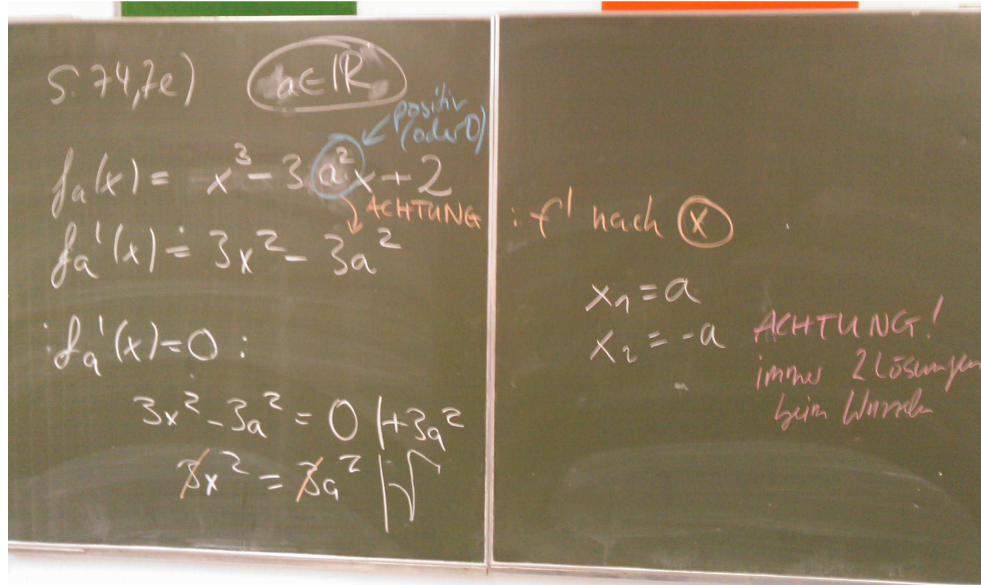 S. 74, 7e) a∈ℝ
positiv
(oder 0)
fₐ(x) = x³ - 3a²x + 2
ACHTUNG : f' nach x
fₐ'(x) = 3x² - 3a²
fₐ'(x) = 0 :
3x² - 3a² = 0 |+3a²
3x² = 3a² |√
x₁ = a
x₂ = -a
ACHTUNG!
immer 2 Lösungen
beim Wurzeln